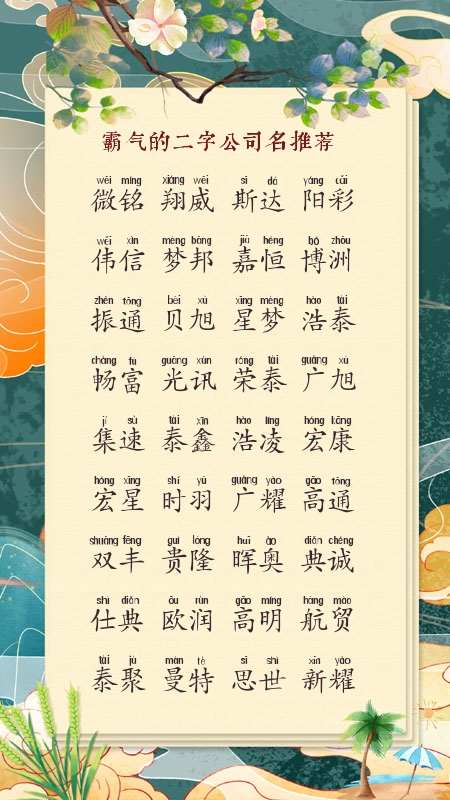 霸气的二字公司名推荐
wēi míng xiáng wēi sī dá yáng cǎi
微铭 翔威 斯达 阳彩
wěi xìn mèng bāng jiā héng bó zhōu
伟信 梦邦 嘉恒 博洲
zhèn tōng bèi xù xīng mèng hào tài
振通 贝旭 星梦 浩泰
chàng fù guāng xùn róng tài guǎng xù
畅富 光讯 荣泰 广旭
jí sù tài xīn hào líng hóng kāng
集速 泰鑫 浩凌 宏康
hóng xīng shí yǔ guǎng yào gāo tōng
宏星 时羽 广耀 高通
shuāng fēng guì lóng huī ào diǎn chéng
双丰 贵隆 晖奥 典诚
shì diǎn ōu rùn gāo míng háng mào
仕典 欧润 高明 航贸
tài jù màn tè sī shì xīn yào
泰聚 曼特 思世 新耀